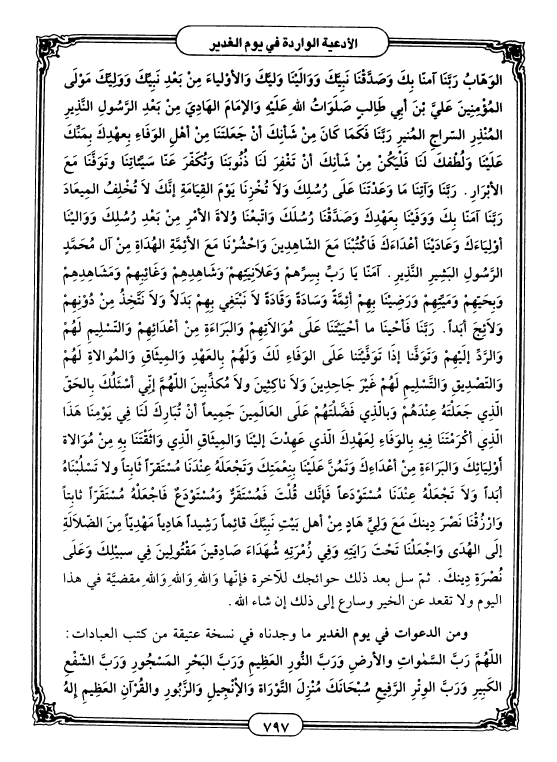 الأدعية الواردة في يوم الغدير
الوَهَابُ رَبَّنَا آمَنَا بِكَ وَصَدَّقْنَا نَبِيَّكَ وَوَالَيْنَا وَلِيَّكَ وَالأَوْلِياءَ مِنْ بَعْدِ نَبِيِّكَ وَوَلِيِّكَ مَوْلَى
المُؤْمِنِينَ عَلِيَّ بْنَ أَبِي طَالِبٍ صَلَوَاتُ الله عَلَيْهِ وَالإِمَامَ الهَادِيَ مِنْ بَعْدِ الرَّسُولِ النَّذِيرِ
المُنْذِرِ السِّراجِ المُنيرِ رَبَّنَا فَكَمَا كَانَ مِنْ شَأْنِكَ أَنْ جَعَلْتَنَا مِنْ أَهْلِ الوَفَاءِ بِعَهْدِكَ بِمَنِّكَ
عَلَيْنَا وَلُطْفِكَ لَنَا فَلْيَكُنْ مِنْ شَأْنِكَ أَنْ تَغْفِرَ لَنَا ذُنُوبَنَا وَتُكَفِّرَ عَنَّا سَيِّئَاتِنَا وَتَوَفَّنَا مَعَ
الأَبْرَارِ . رَبَّنَا وَآتِنَا مَا وَعَدْتَنَا عَلَى رُسُلِكَ وَلاَ تُخْزِنَا يَوْمَ القِيَامَةِ إِنَّكَ لاَ تُخْلِفُ المِيعَادَ
رَبَّنَا آمَنَا بِكَ وَوَفَيْنَا بِعَهْدِكَ وَصَدَّقْنَا رُسُلَكَ وَاتَّبَعْنَا وُلاَةَ الأَمْرِ مِنْ بَعْدِ رُسُلِكَ وَوَالَيْنَا
أَوْلِيَاءَكَ وَعَادَيْنَا أَعْدَاءَكَ فَاكْتُبْنَا مَعَ الشَّاهِدِينَ وَاحْشُرْنَا مَعَ الأَئِمَّةِ الهُدَاةِ مِنْ آلِ مُحَمَّدٍ
الرَّسُولِ البَشِيرِ النَّذِيرِ . آمَنَّا يَا رَبِّ بِسِرِّهِمْ وَعَلاَنِيَتِهِمْ وَشَاهِدِهِمْ وَغَائِبِهِمْ وَمَشَاهِدِهِمْ
وَبِحَيِّهِمْ وَمَيِّتِهِمْ وَرَضِيْنَا بِهِمْ أَئِمَّةً وَسَادَةً وَقَادَةً لاَ نَبْتَغِي بِهِمْ بَدَلاً وَلاَ نَتَّخِذُ مِنْ دُوْنِهِمْ
وَلاَئِجَ أَبَداً . رَبَّنَا فَأَحْيِنَا ما أَحْيَيْتَنَا عَلَى مُوَالاَتِهِمْ وَالبَرَاءَةِ مِنْ أَعْدَائِهِمْ وَالتَّسْلِيمِ لَهُمْ
وَالرَّدِّ إِلَيْهِمْ وَتَوَفَّنَا إِذَا تَوَفَّيْتَنَا عَلَى الوَفَاءِ لَكَ وَلَهُمْ بِالعَهْدِ وَالمِيثَاقِ وَالمُوالاةِ لَهُمْ
وَالتَّصْدِيقِ وَالتَّسْلِيمِ لَهُمْ غَيْرَ جَاحِدِينَ وَلاَ نَاكِثِينَ ولاَ مُكَذِّبِينَ اللَّهُمَّ إِنِّي أَسْئَلُكَ بِالحَقِّ
الَّذِي جَعَلْتَهُ عِنْدَهُمْ وَبالَّذِي فَضَّلْتَهُمْ عَلَى العَالَمِينَ جَمِيعاً أَنْ تُبَارِكَ لَنَا فِي يَوْمِنَا هَذَا
الَّذِي أَكْرَمْتَنَا فِيهِ بِالوَفَاءِ لِعَهْدِكَ الَّذي عَهِدْتَ إِلَيْنَا وَالمِيثَاقِ الَّذِي وَاثَقْتَنَا بِهِ مِنْ مُوَالاَةِ
أَوْلِيَائِكَ وَالبَرَاءَةِ مِنْ أَعْدَاءِكَ وَتَمُنَّ عَلَيْنَا بِنِعْمَتِكَ وَتَجْعَلَهُ عِنْدَنَا مُسْتَقَرّاً ثَابِتاً ولا تَسْلُبْنَاهُ
أَبَداً وَلاَ تَجْعَلَهُ عِنْدَنَا مُسْتَوْدَعاً فَإِنَّكَ قُلْتَ فَمُسْتَقَرٌّ وَمُسْتَوْدَعٌ فَاجْعَلْهُ مُسْتَقَرّاً ثَابِتاً
وَارْزُقْنَا نَصْرَ دِينِكَ مَعَ وَلِيٍّ هَادٍ مِنْ أَهْلِ بَيْتِ نَبِيِّكَ قائِماً رَشِيداً هَادِياً مَهْدِيّاً مِنَ الضَّلاَلَةِ
إِلَى الهُدَى وَاجْعَلْنَا تَحْتَ رَايَتِهِ وَفِي زُمْرَتِهِ شُهَدَاءَ صَادِقِينَ مَقْتُولِينَ فِي سَبِيلِكَ وَعَلَى
نُصْرَةِ دِينِكَ . ثمّ سل بعد ذلك حوائجك للآخرة فإنّها وَاللهِ وَاللهِ وَاللهِ مقضيَّة في هذا
اليوم ولا تقعد عن الخير وسارع إلى ذلك إن شاء الله .
ومن الدعوات في يوم الغدير ما وجدناه في نسخة عتيقة من كتب العبادات :
اللَّهُمَّ رَبَّ السَّمٰوَاتِ وَالأَرْضِ وَرَبَّ النُّورِ العَظِيمِ وَرَبَّ البَحْرِ المَسْجُورِ وَرَبَّ الشَّفْعِ
الكَبِيرِ وَرَبَّ الوِتْرِ الرَّفِيعِ سُبْحَانَكَ مُنْزِلَ التَّوْرَاةِ وَالإِنْجِيلِ وَالزَّبُورِ والقُرْآنِ العَظِيمِ إِلٰهُ
٧٩٧